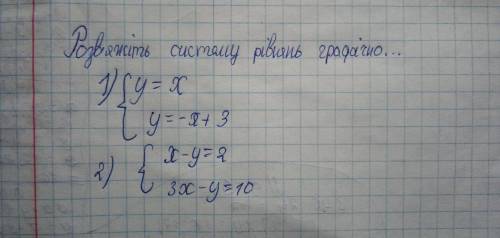 Розв'яжіть систему рівянь графічно...
1) { y = x
y = -x + 3
2) { x - y = 2
3x - y = 10